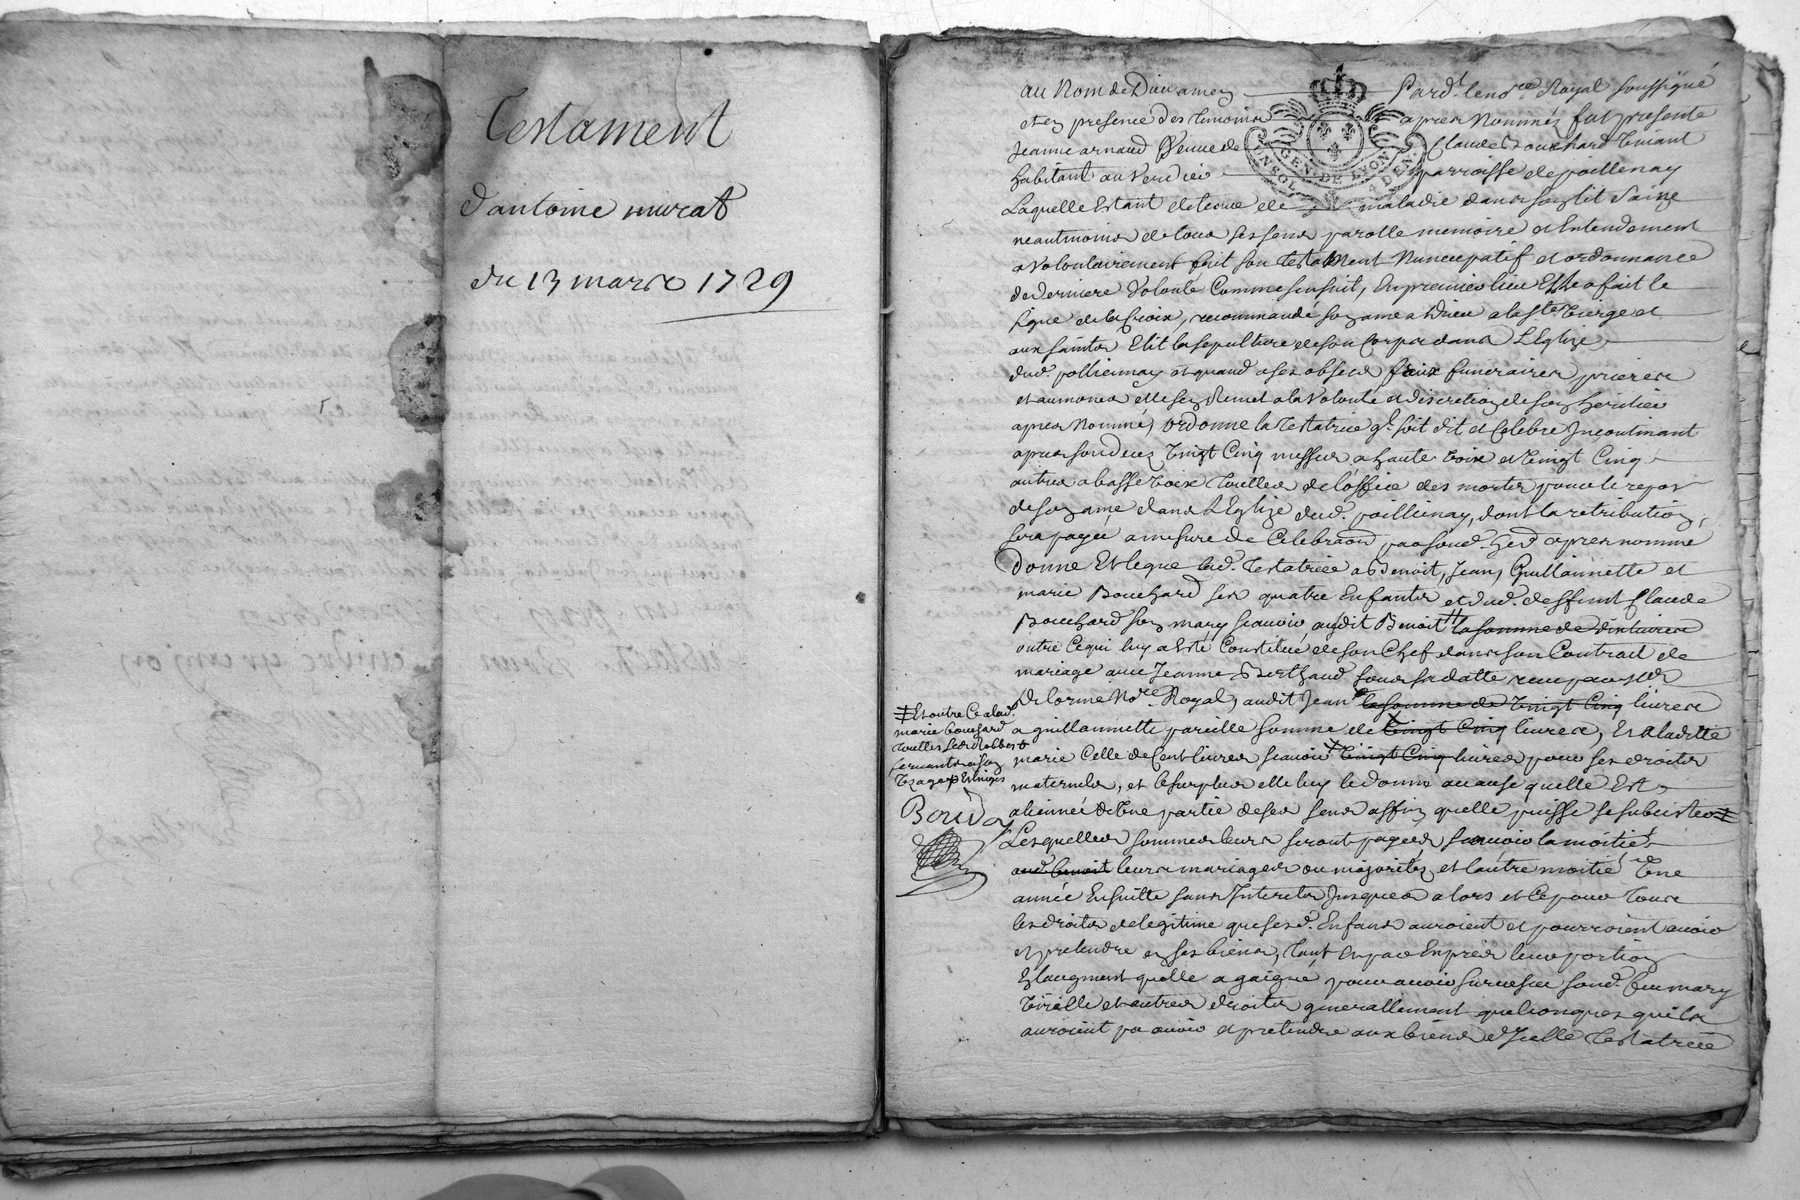 Testament
d'antoine murat
du 13 mars 1729
au Nom de Dieu amen Pard.t le no.re Royal soussigné
et en presence des temoins apres nommés fut presente
Jeanne arnaud Veuve de Claude Bouchard vivant
habitant au verdier parroisse de poillenay
GEN. DE LYON
UN SOL 4 DEN.
Laquelle Estant detenue de maladie dans son lit Saine
neantmoins de tous ses sens parolle memoire et Entendement
a Volontairement fait son testament Nuncupatif et ordonnance
de derniere Volonté Comme sensuit, En premier lieu Elle a fait le
signe de la Croix, recommandé son ame a Dieu a la s.te vierge et
aux saints Elit la sepulture de son Corps dans L'Eglize
dud. pollienay et quand a ses obseques fraix funeraires prieres
et aumones elle sen Remet a la Volonté et discretion de son heritier
apres Nommé, ordonne la Testatrice q.l soit dit et Celebré Incontinant
apres son decez vingt Cinq messes a haute voix et vingt Cinq
autres a basse voix toutes de l'office des morts pour le repos
de son ame dans l'Eglize dud. poillienay, dont la retribution
sera payée a mesure de Celebraon par son d. her. apres nommé
Donne Et legue lad. Testatrice a Benoit, Jean, Guillaumette et
marie Bouchard ses quatre Enfants et dud. deffunt Claude
Bouchard son mary scavoir audit Benoit la somme de dix livres
outre Ce qui luy a Esté Constitué de son Chef dans son Contrat de
mariage avec Jeanne Berthaud sous sa datte receu par
Delorme No.re Royal, audit Jean la somme de vingt Cinq livres
a guillaumette pareille somme de vingt Cinq livres, Et a laditte
marie Celle de Cent livres scavoir vingt Cinq livres pour ses droits
maternels, et le surplus elle luy le donne a cause quelle Est
aliennée d'une partie de ses sens affin quelle puisse se subsister
Lesquelles sommes leurs seront payees scavoir la moitié
aud. benoit leurs mariages ou majorités et l'autre moitié Une
année Ensuitte sans Interets Jusques alors et Ce pour tous
les droits de legitime que ses d. Enfans auroient et pourroient avoir
et pretendre en ses biens, tant En pres leur portion
En laugment quelle a gaigné pour avoir survescu son d. feu mary
virille et autres droits generallement quelconques quils
auroient pu avoir et pretendre aux biens d'Icelle Testatrice
Et outre Ce a lad.
marie bouchard
toutes ses Robbes
servants a son
usage et linges